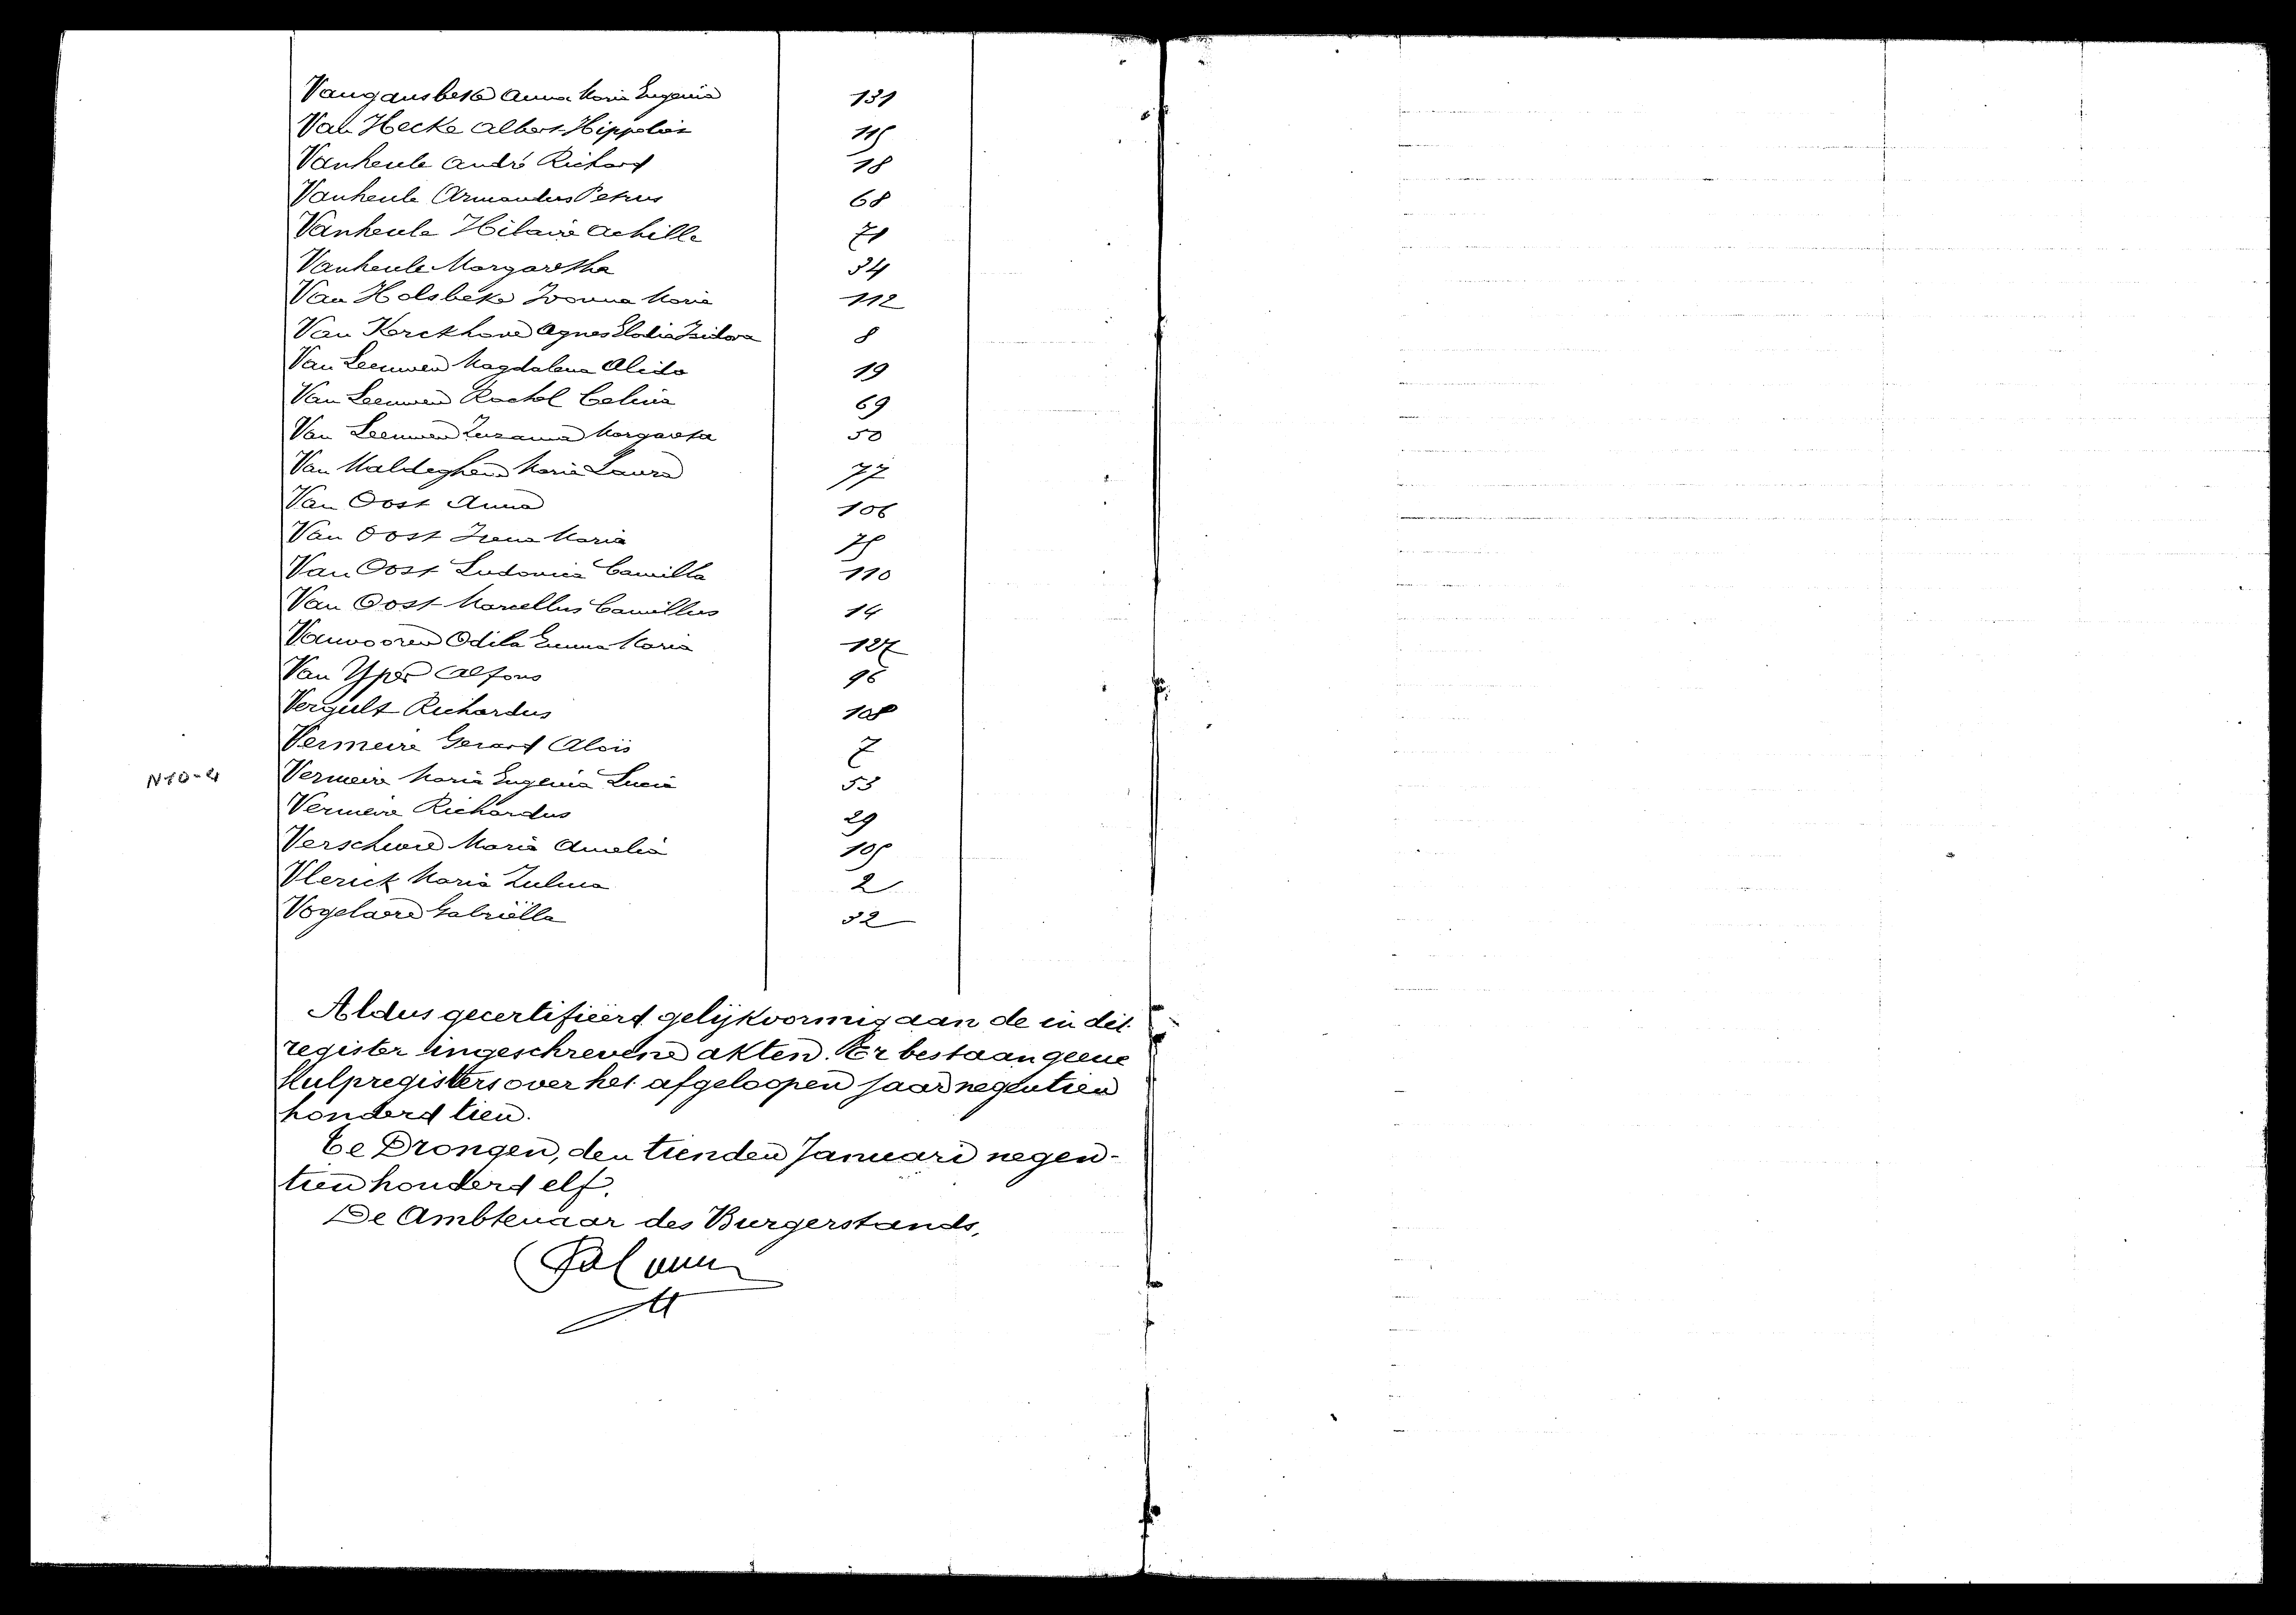 Vangansbeke Anna Maria Eugenia 131
Van Hecke Albert Hippoliet 115
Vanheule André Richard 18
Vanheule Armandus Petrus 68
Vanheule Hilaire Achille 71
Vanheule Margaretha 34
Van Holsbeke Ivonna Maria 112
Van Kerckhove Agnes Elodia Isidora 8
Van Leeuwen Magdalena Alida 19
Van Leeuwen Rachel Celina 69
Van Leeuwen Zuzanna Margareta 50
Van Maldeghem Maria Laura 77
Van Oost Anna 106
Van Oost Irena Maria 75
Van Oost Ludovica Camilla 110
Van Oost Marcellus Camillus 14
Vanvooren Odila Emma Maria 127
Van Yper Alfons 96
Vergult Richardus 108
Vermeire Gerard Aloïs 7
N10-4 Vermeire Maria Eugenia Lucia 53
Vermeire Richardus 29
Verschuere Maria Amelia 105
Vlerick Maria Zulma 2
Vogelaere Gabriëlla 32
Aldus gecertifieerd gelijkvormig aan de in dit
register ingeschrevene akten. Er bestaan geene
hulpregisters over het afgeloopen jaar negentien
honderd tien.
Te Drongen, den tienden Januari negen-
tien honderd elf.
De Ambtenaar des Burgerstands,